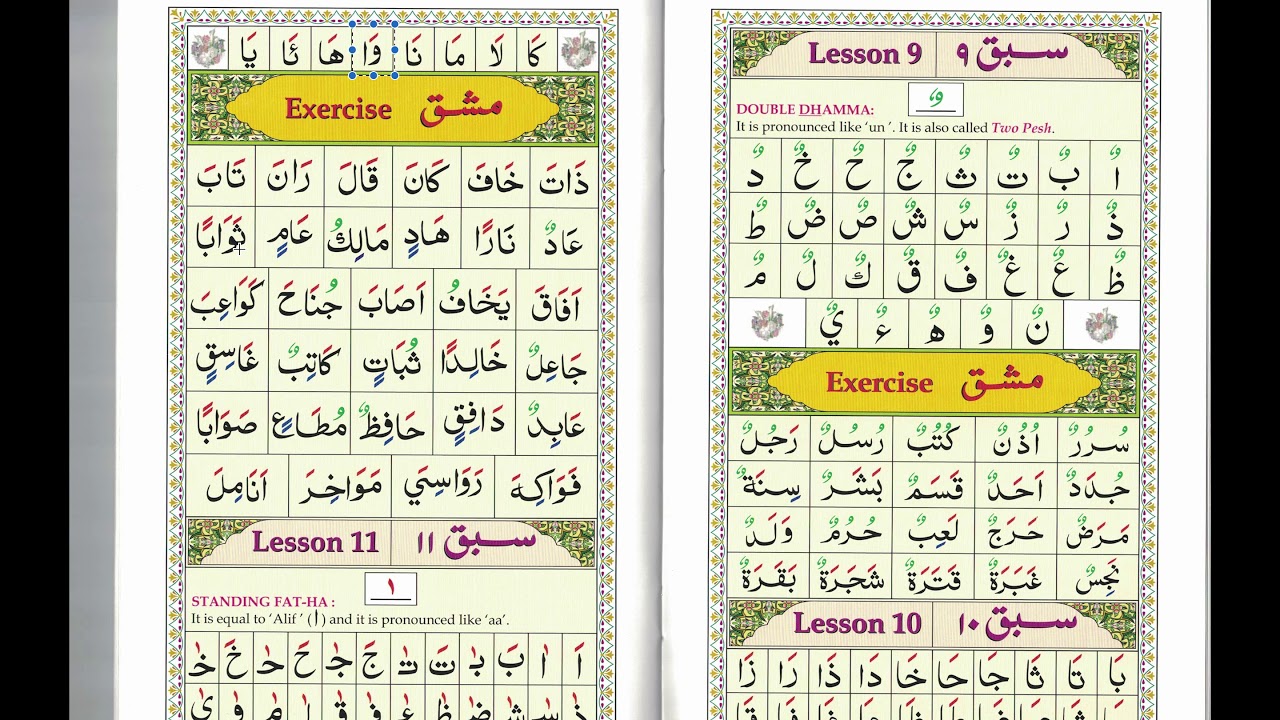 Lesson 9 سبق ٩
DOUBLE DHAMMA: ـٌ
It is pronounced like ‘un ’. It is also called Two Pesh.
اٌ بٌ تٌ ثٌ جٌ حٌ خٌ دٌ
ذٌ رٌ زٌ سٌ شٌ صٌ ضٌ طٌ
ظٌ عٌ غٌ فٌ قٌ كٌ لٌ مٌ
نٌ وٌ هٌ ءٌ يٌ
Exercise مشق
سُرُرٌ اُذُنٌ كُتُبٌ رُسُلٌ رَجُلٌ
جُدَدٌ اَحَدٌ قَسَمٌ بَشَرٌ سِنَةٌ
مَرَضٌ حَرَجٌ لَعِبٌ حُرُمٌ وَلَدٌ
نَجِسٌ غَبَرَةٌ قَتَرَةٌ شَجَرَةٌ بَقَرَةٌ
Lesson 10 سبق ١٠
بَا تَا ثَا جَا حَا خَا دَا ذَا رَا زَا
كَا لَا مَا نَا وَا هَا ئَا يَا
Exercise مشق
ذَاتَ خَافَ كَانَ قَالَ رَانَ تَابَ
عَادٌ نَارًا هَادٍ مَالِكٌ عَامٍ ثَوَابًا
اَفَاقَ يَخَافُ اَصَابَ جُنَاحَ كَوَاعِبَ
جَاعِلٌ خَالِدًا ثُبَاتٍ كَاتِبٌ غَاسِقٍ
عَابِدٌ دَافِقٍ حَافِظٌ مُطَاعٍ صَوَابًا
فَوَاكِهَ رَوَاسِيَ مَوَاخِرَ اَنَامِلَ
Lesson 11 سبق ١١
STANDING FAT-HA :
It is equal to ‘Alif ’ (ا) and it is pronounced like ‘aa’.
اَ اٰ بَ بٰ تَ تٰ جَ جٰ حَ حٰ خَ خٰ